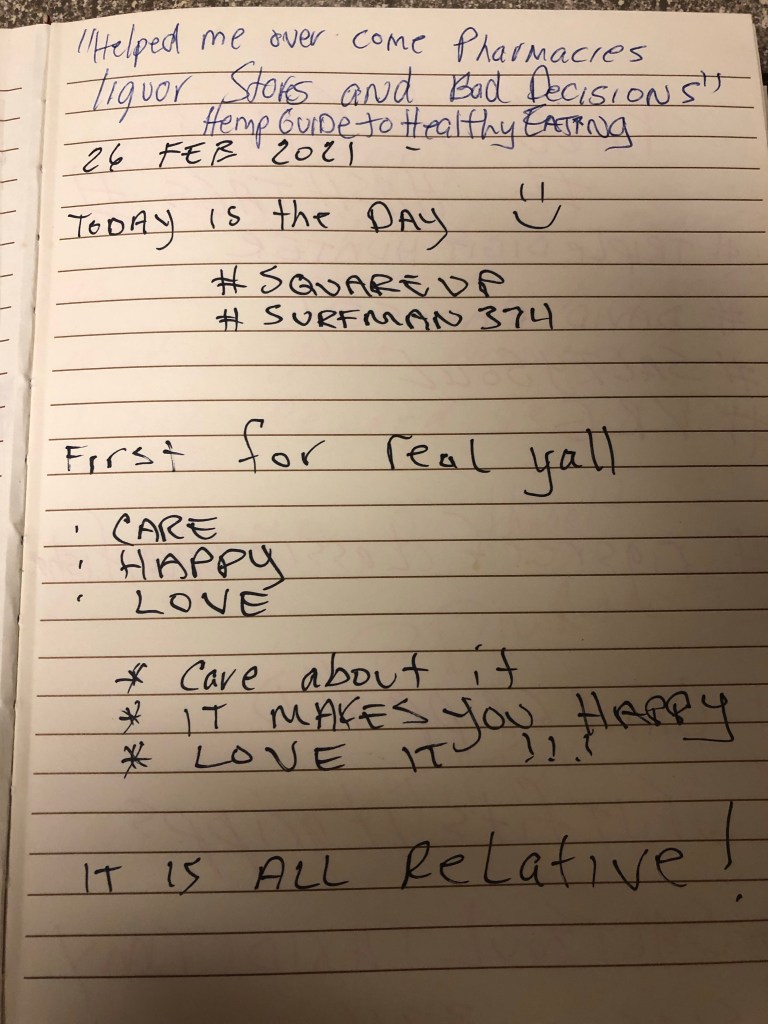 "Helped me over come Pharmacies
liquor Stores and Bad Decisions"
Hemp Guide to Healthy EATING
26 FEB 2021
TODAY is the DAY
# SQUARE UP
# SURFMAN 374
First for real yall
· CARE
· HAPPY
· LOVE
* Care about it
* IT MAKES YOU HAPPY
* LOVE IT !!!
IT IS ALL Relative!